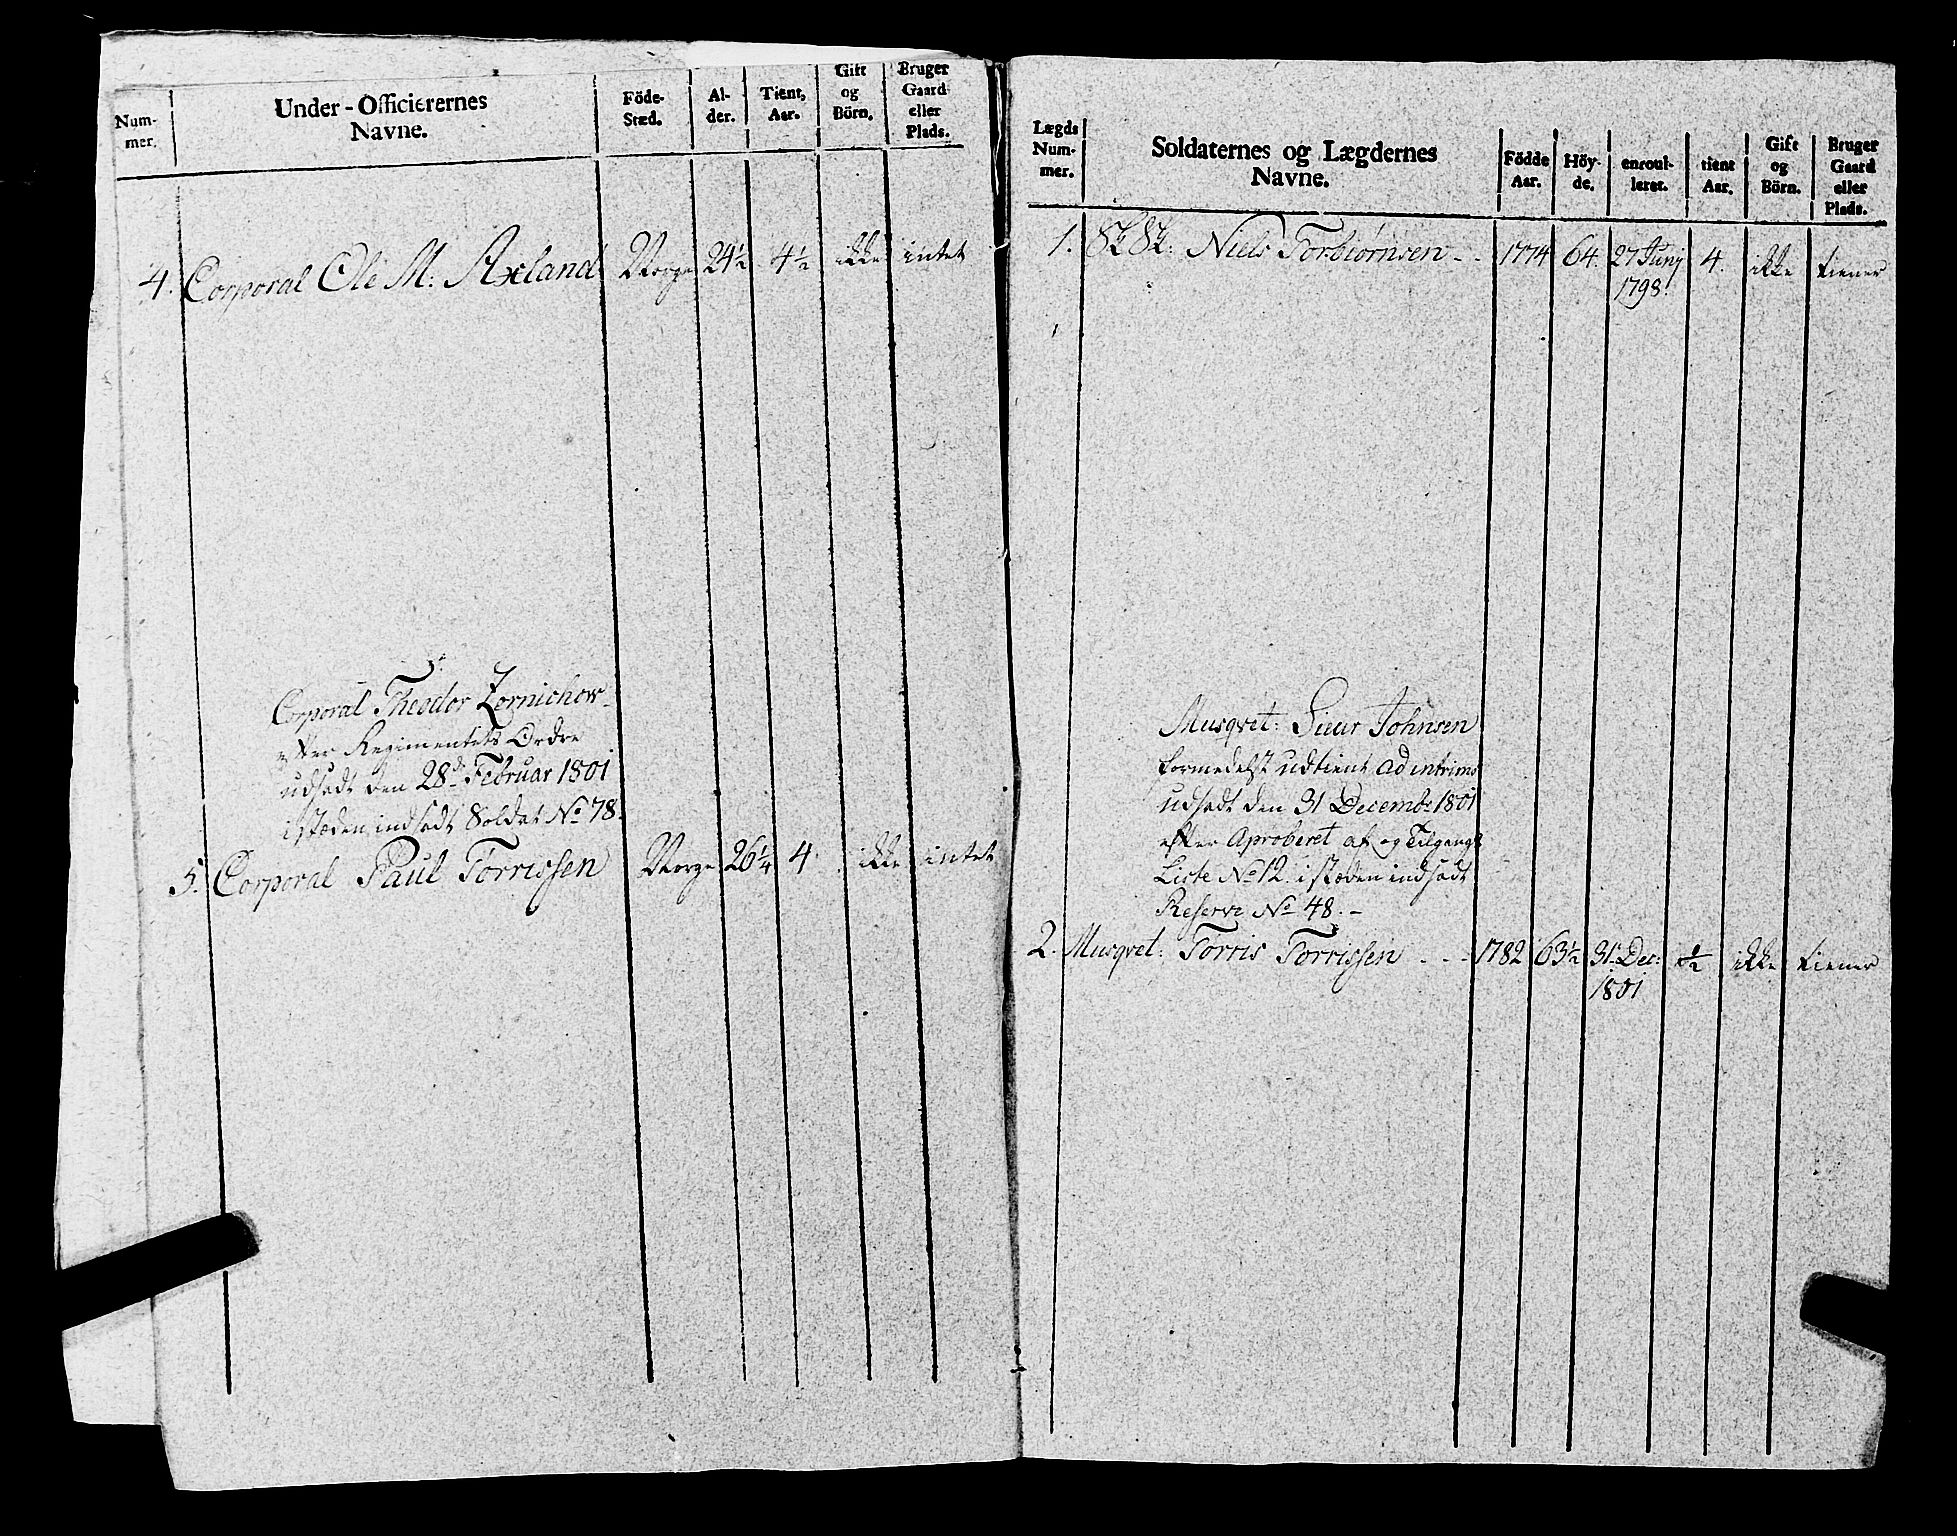 Num-
mer.
Under-Officierernes
Navne.
Föde-
Stæd.
Al-
der.
Tient,
Aar.
Gift
og
Börn.
Bruger
Gaard
eller
Plads.
4. Corporal Ole M: Axland Norge 24½ 4½ ikke intet
5.
Corporal Theodor Zernichow
efter Regimentets Ordre
udsadt den 28d Februar 1801
i stæden indsadt Soldat No 78.
5. Corporal Paul Torrissen Norge 26¼ 4. ikke intet
Lægds
Num-
mer.
Soldaternes og Lægdernes
Navne.
Födde
Aar.
Höy-
de.
enroul-
leret.
tient
Aar.
Gift
og
Börn.
Bruger
Gaard
eller
Plads.
1. Niels Torbiørnsen - - 1774 64. 27 Junj 4. ikke tiener
1798.
Musqvet: Siur Johnsen
formedelst udtient ad intrims
udsadt den 31 Decembr 1801
efter Aproberet af og Tilgangs
Liste No 12. i stæden indsadt
Reserve No 48. -
2. Musqvet: Torris Torrissen - - - 1782 63½ 31 Dec: ½ ikke tiener
1801